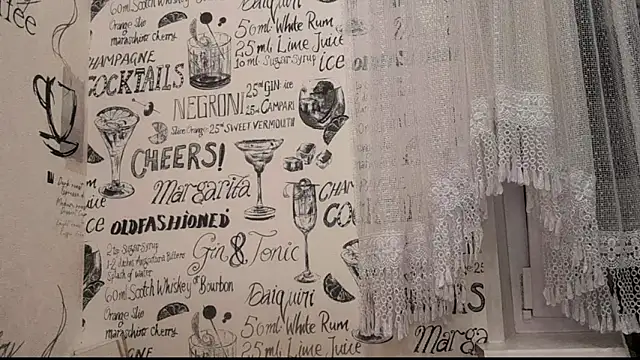 60ml Scotch Whiskey
Daiquiri
Orange Slice
maraschino Cherry
56ml White Rum
25ml Lime Juice
10ml Sugar Syrup
ice
CHAMPAGNE
COCKTAILS
NEGRONI
25ml GIN ice
25ml CAMPARI
Slice Orange
25ml SWEET VERMOUTH
CHEERS!
Margarita
CHAM
COC
ice
OLDFASHIONED
Gin & Tonic
2tsp Sugar Syrup
1-2 dashes Angostura Bitters
Splash of water
60ml Scotch Whiskey or Bourbon
Daiquiri
Orange Slice
maraschino Cherry
56ml White Rum
25ml Lime Juice
Marga